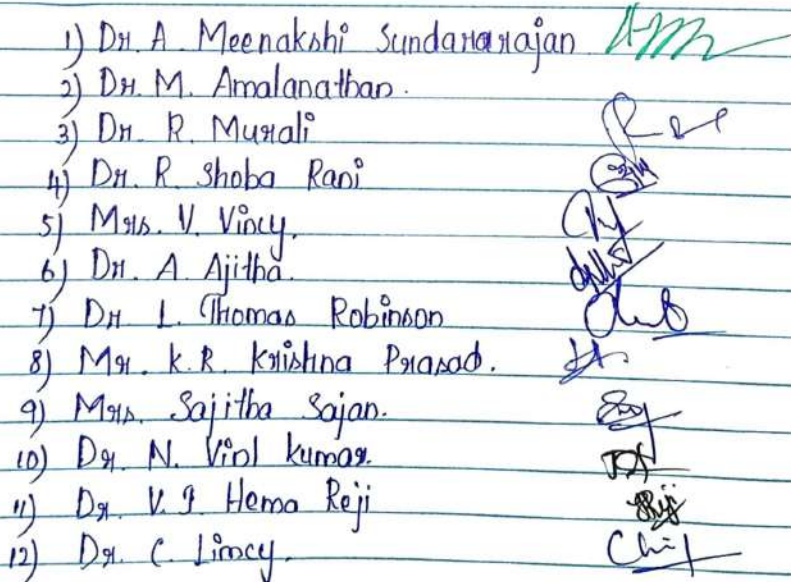 1) Dr. A. Meenakshi Sundararajan
2) Dr. M. Amalanathan.
3) Dr. R. Murali
4) Dr. R. Shoba Rani
5) Mrs. V. Vincy.
6) Dr. A. Ajitha.
7) Dr L. Thomas Robinson
8) Mr. K. R. Krishna Prasad.
9) Mrs. Sajitha Sajan.
10) Dr. N. Vinl kumar.
11) Dr. V. G. Hema Reji
12) Dr. C. Limcy.